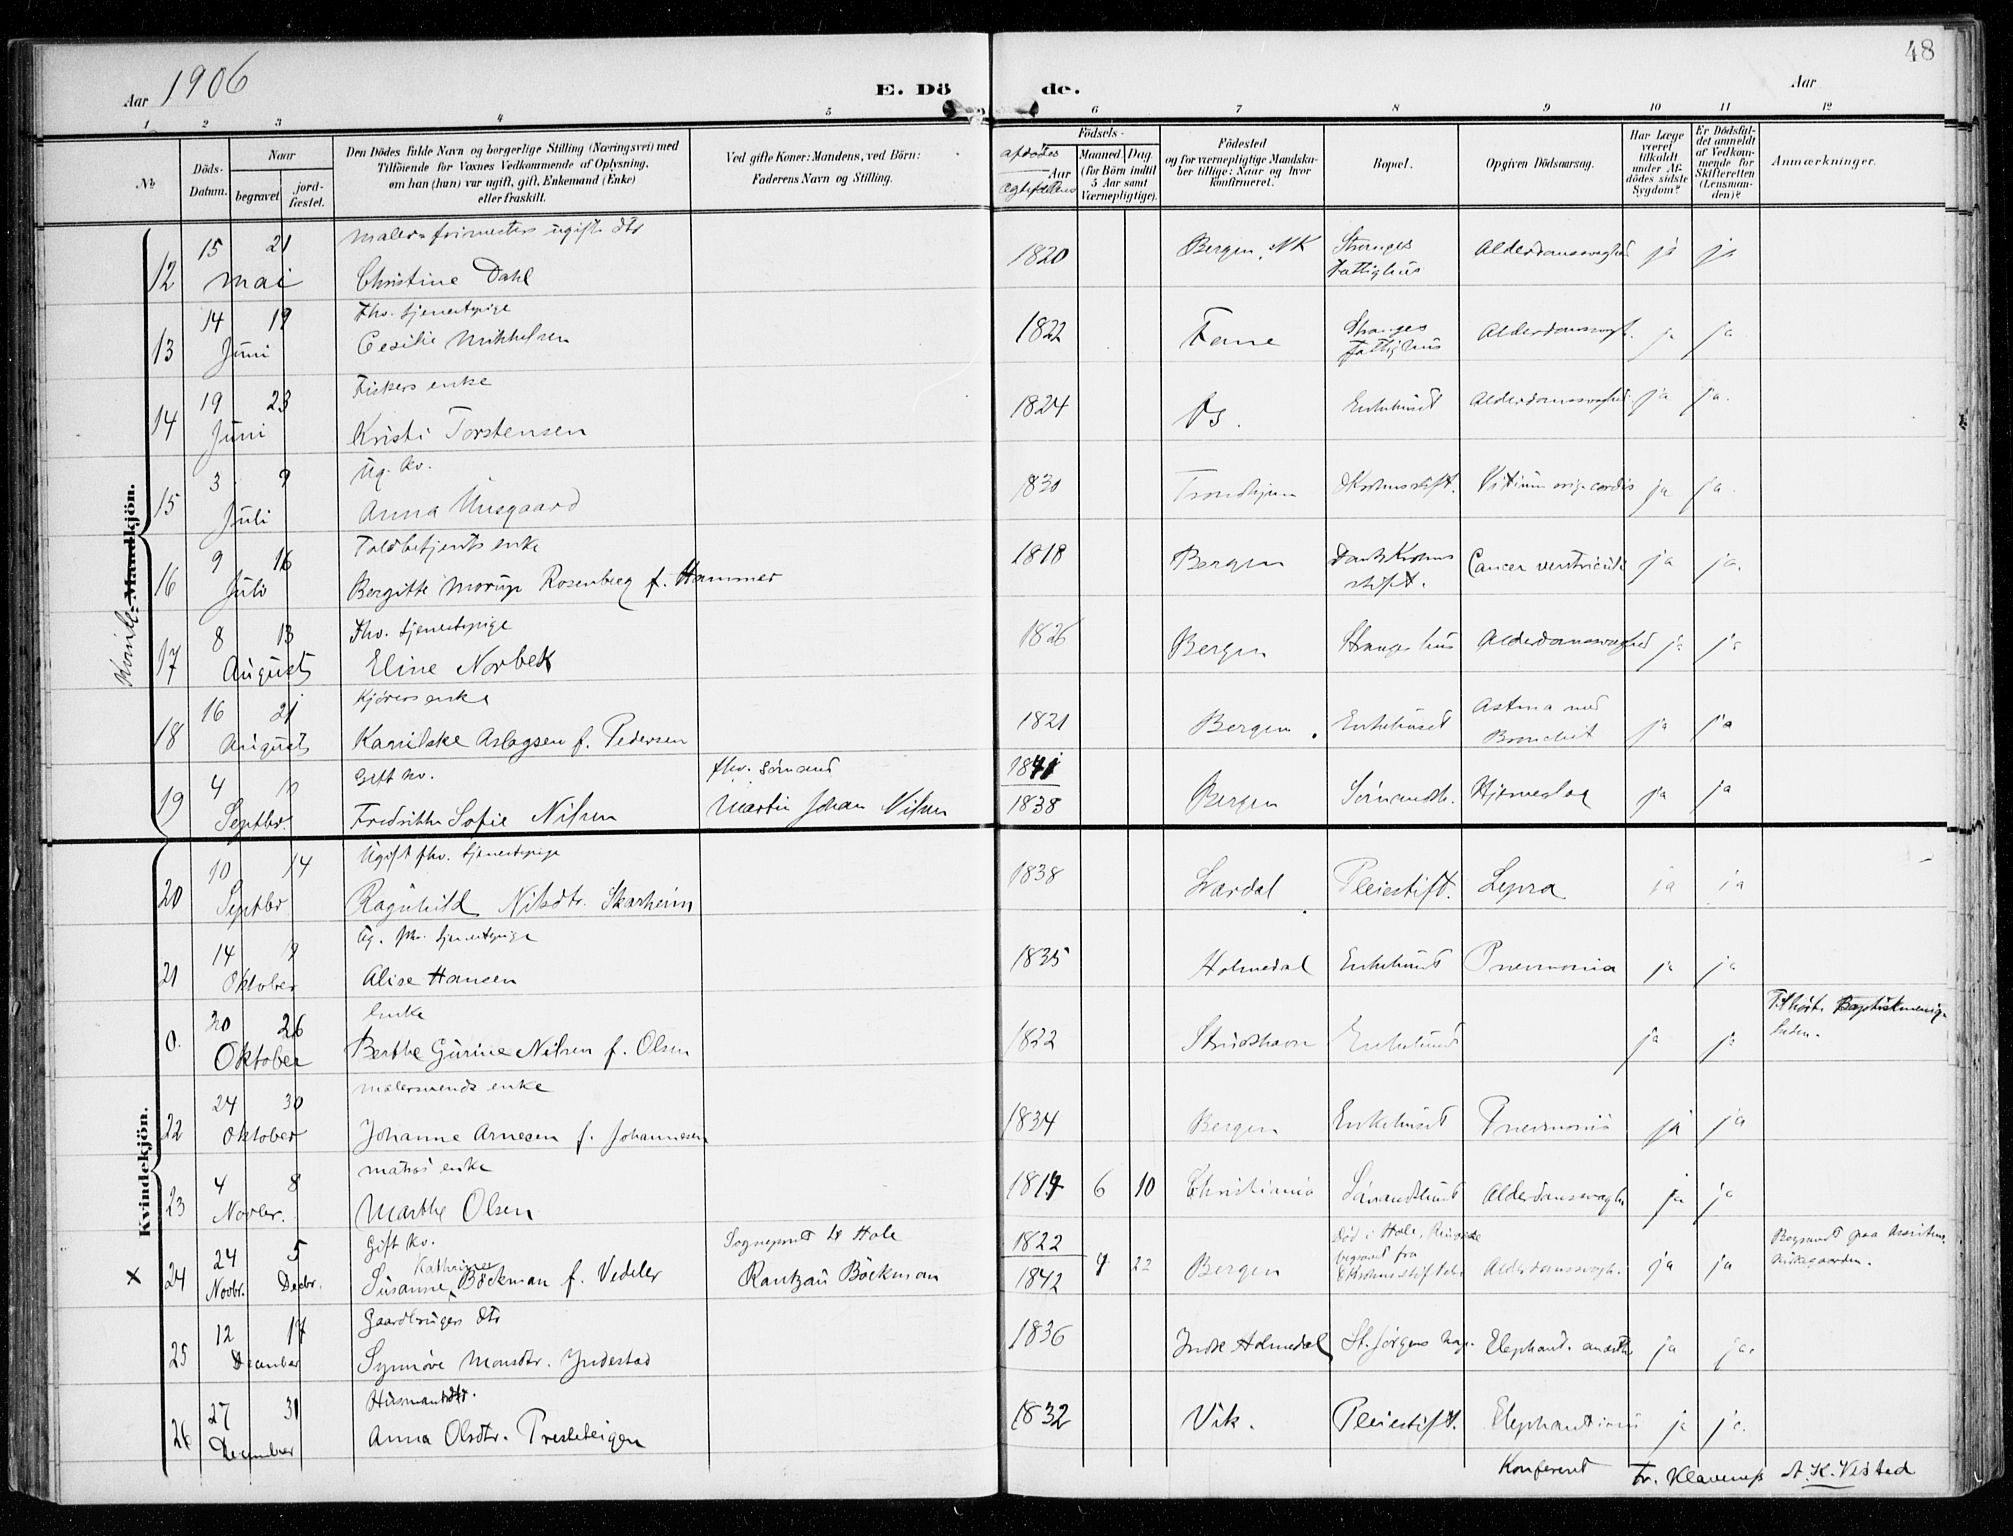 48
Aar 1906
E. Dö de.
Aar
1 2 3 4 5 6 7 8 9 10 11 12
№
Döds-Datum.
Naar
begravet
jord-fæstet.
Den Dödes fulde Navn og borgerlige Stilling (Næringsvei) med
Tilföiende for Voxnes Vedkommende af Oplysning,
om han (hun) var ugift, gift, Enkemand (Enke)
eller fraskilt.
Ved gifte Koner: Mandens, ved Börn:
Faderens Navn og Stilling.
Födsels-
afdødes
Aar
ægtefælles
Maaned Dag.
(for Börn indtil
5 Aar samt
Værnepligtige).
Födested
og for værnepligtige Mandska-
ber tillige: Naar og hvor
konfirmeret.
Bopæl.
Opgiven Dödsaarsag.
Har Læge
været
tilkaldt
under Af-
dödes sidste
Sygdom?
Er Dödsfal-
det anmeldt
af Vedkom-
mende for
Skifteretten
(Lensman-
den)?
Anmærkninger.
Mandkjön.
Kvindekjön.
12 15 21 mai
ugift dtr
Christine Dahl
1820 Bergen, NK Stranges Fattighus Alderdomssvaghed ja ja
13 14 19 Juni
Fhv. tjenestepige
Cesilie Mikkelsen
1822 Fane Stranges Fattighus Alderdomssvagh. ja ja
14 19 23 Juni
Fiskers enke
Kristi Torstensen
1824 Os. Enkehuset Alderdomssvaghed ja ja.
15 3 9 Juli
Ug. kv.
Anna
1830 Trondhjem Vitium cordis ja ja.
16 9 16 Juli
Toldbetjents enke
Bergitte Morup Rosenberg f. Hammer
1818 Bergen Danckert Krohns stift. Cancer ventriculi ja ja.
17 8 13 August
Fhv. tjenestepige
Eline Norbek
1826 Bergen Strangeshus Alderdomssvaghed ja ja
18 16 21 August
Kjørers enke
Aslagsen f. Pedersen
1821 Bergen. Enkehuset Astma med Bronchit ja ja
19 4 10 Septbr.
Gift kv.
Fredrikke Sofie Nilsen
fhv. sømand
Martin Johan Nilsen
1841
1838 Bergen Sømandsh. Hjerneslag ja ja
20 10 14 Septbr
Ugift fhv. tjenestepige
Ragnhild Nilsdtr. Skarheim
1838 Lærdal Pleiestift. Lepra ja ja
21 14 19 Oktober
Ug. fhv. tjenestepige
Alise Hansen
1835 Holmedal Enkehuset Pneumonia ja ja
0. 20 26 Oktober
Enke
Berthe Gurine Nilsen f. Olsen
1822 Enkehuset ja ja
Tilhørte Baptistmenigheden.
22 24 30 Oktober
malersvends enke
Johanne Arnesen f. Johannesen
1834 Bergen Enkehuset Pneumoni ja ja
23 4 8 Novbr.
matros enke
Marthe Olsen
1814 6 10 Christiania Sømandshuset Alderdomssvagh ja ja
X 24 24 Novbr. 5 Decbr.
Gift kv.
Kathrine
Susanne Böckman f. Vedeler
Sogneprest til Hole
Rantzau Böckman
1822
1842 22 Bergen Død i Hole, Ringerike begravet fra Alderdomssvagh. ja ja
Begravet paa kirkegaarden.
25 12 17 December
Gaardbrugers dtr
Synnöve Monsdtr. Yndestad
1836 Indre Holmedal St. Jørgens Elephant. ja ja.
26 27 31 December
Husmandsdtr.
Anna Olsdtr. Presteteigen
1832 Vik. Pleiestift. Elephantiasis ja ja.
Konfereret Fr. Klaveness A. K. Visted